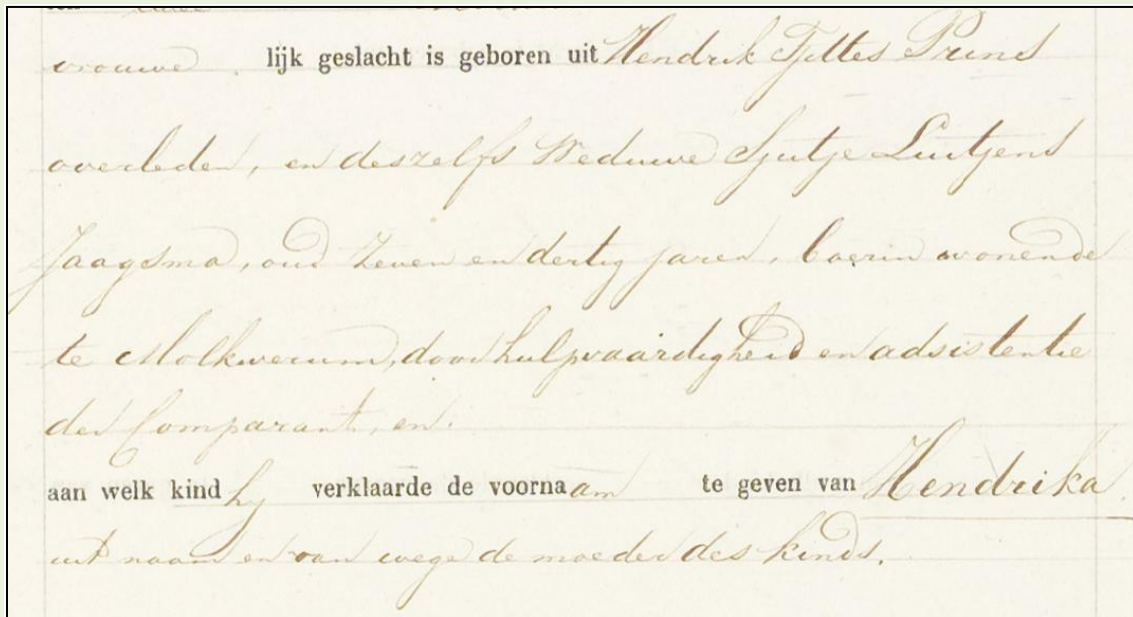 vrouwe lijk geslacht is geboren uit Hendrik Tjittes Prins
overleden, en deszelfs Weduwe Sjutje Luitjens
Jaagsma, oud zeven en dertig jaren, boerin wonende
te Molkwerum, door hulpvaardigheid en adsistentie
der Comparant, en.
aan welk kind hy verklaarde de voornaam te geven van Hendrika
uit naam en van wege de moeder des kinds.